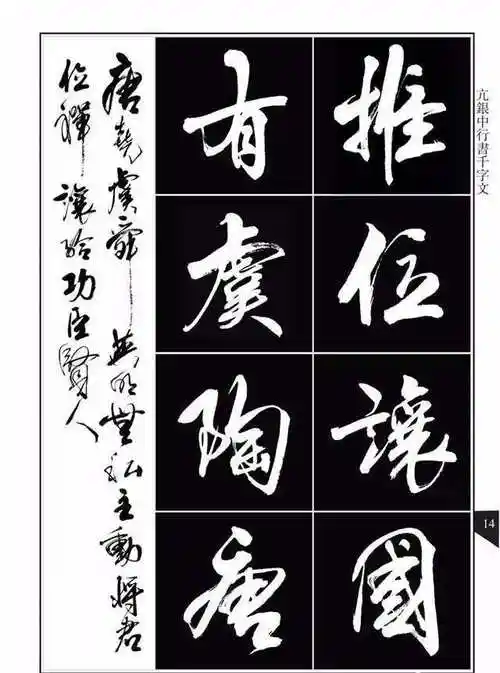 亢銀中行書千字文
14
推位讓國
有虞陶唐
唐堯虞舜英明無私主動将君
位禪讓給功臣賢人